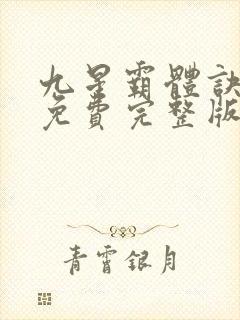 九星霸體訣
免費完整版
青霄銀月